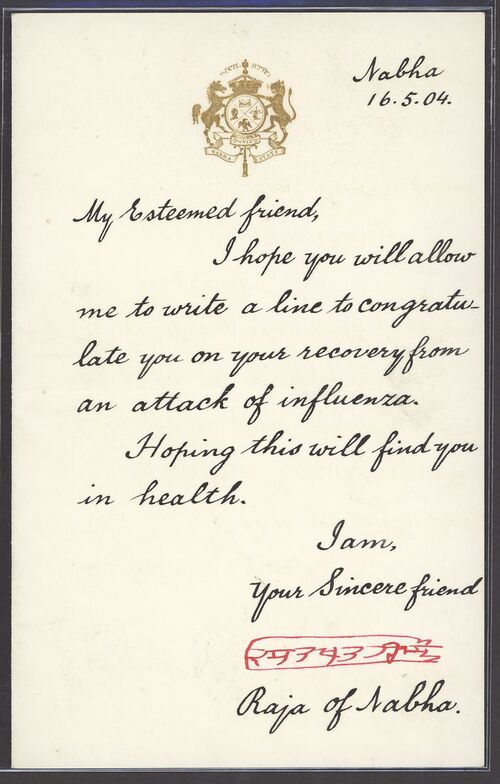 Nabha
16.5.04.
NABHA STATE
My Esteemed friend,
I hope you will allow
me to write a line to congratu-
late you on your recovery from
an attack of influenza.
Hoping this will find you
in health.
I am,
Your Sincere friend
Raja of Nabha.